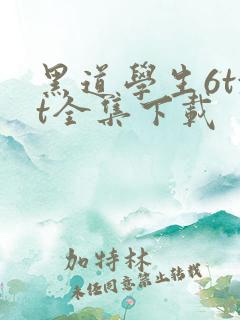 黑道學生6tx
t全集下載
加特林
未经同意禁止转载